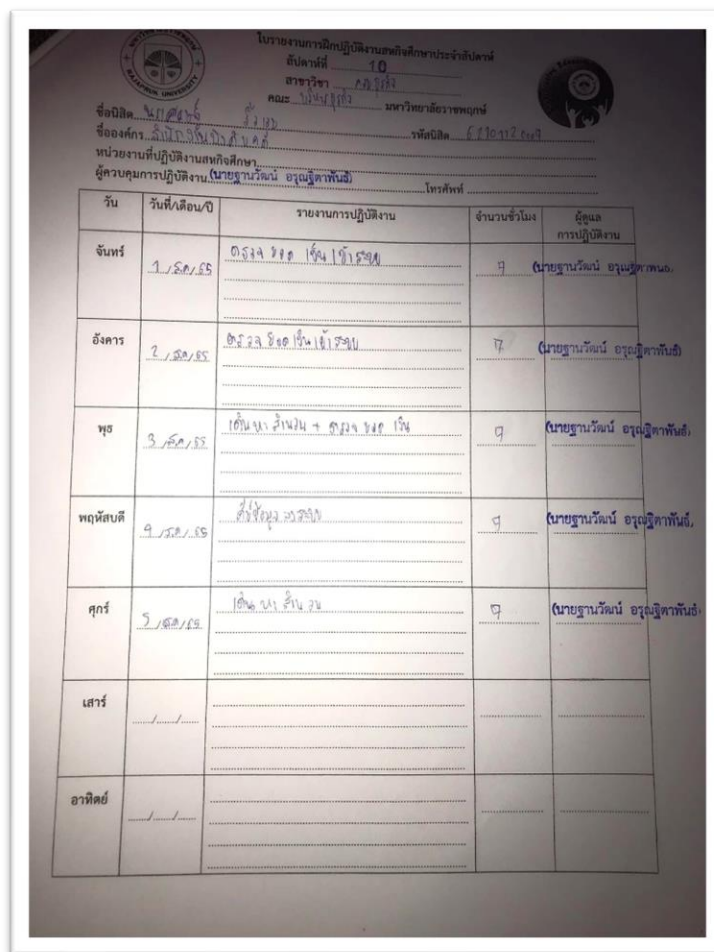 RAJAPRUK UNIVERSITY
ใบรายงานการฝึกปฏิบัติงานสหกิจศึกษาประจำสัปดาห์
สัปดาห์ที่ 10
สาขาวิชา
คณะ บริหารธุรกิจ มหาวิทยาลัยราชพฤกษ์
ชื่อนิสิต รหัสนิสิต
ชื่อองค์กร
หน่วยงานที่ปฏิบัติงานสหกิจศึกษา
ผู้ควบคุมการปฏิบัติงาน (นายฐานวัฒน์ อรุณฐิตาพันธ์) โทรศัพท์
วัน วันที่/เดือน/ปี รายงานการปฏิบัติงาน จำนวนชั่วโมง ผู้ดูแล
การปฏิบัติงาน
จันทร์ 1 /ส.ค/ 65 ตรวจ ยอด เงิน เข้า ระบบ 7 (นายฐานวัฒน์ อรุณฐิตาพันธ์)
อังคาร 2 /ส.ค/ 65 ตรวจ ยอด เงิน เข้า ระบบ 7 (นายฐานวัฒน์ อรุณฐิตาพันธ์)
พุธ 3 /ส.ค/ 65 เดิน หา สำนวน + ตรวจ ยอด เงิน 7 (นายฐานวัฒน์ อรุณฐิตาพันธ์)
พฤหัสบดี 4 /ส.ค/ 65 คีย์ข้อมูล ลง ระบบ 7 (นายฐานวัฒน์ อรุณฐิตาพันธ์)
ศุกร์ 5 /ส.ค/ 65 เดิน หา สำนวน 7 (นายฐานวัฒน์ อรุณฐิตาพันธ์)
เสาร์
อาทิตย์